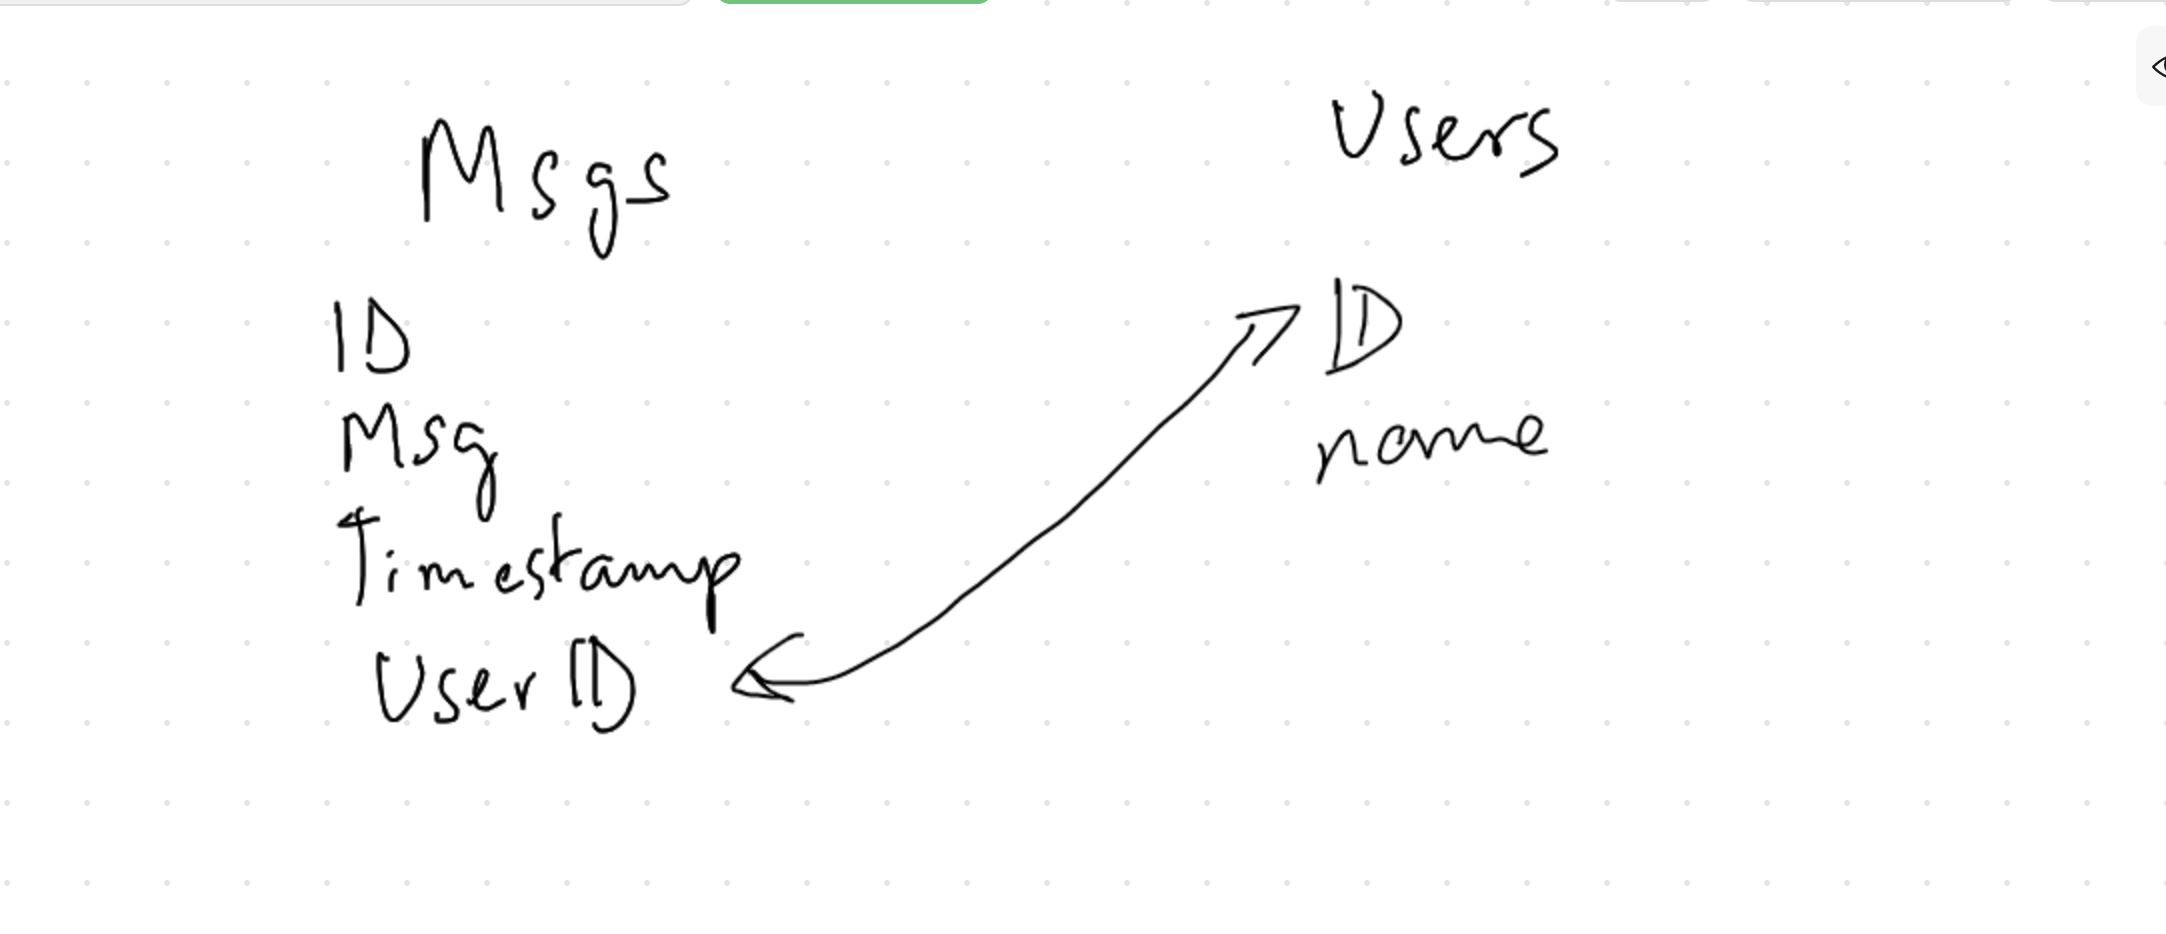 Msgs
ID
Msg
Timestamp
User ID
Users
ID
name